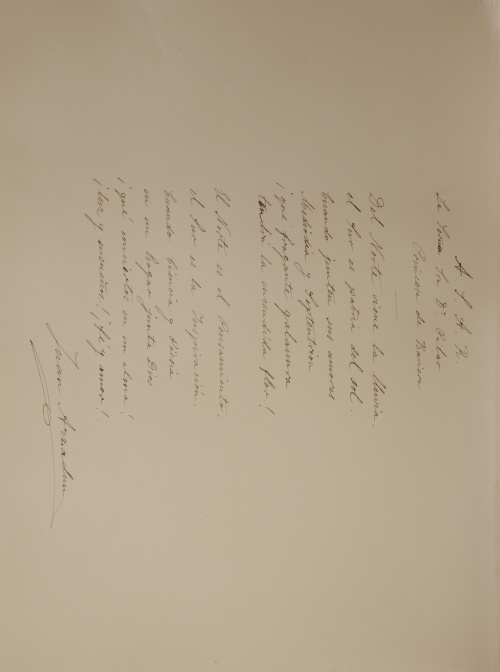 A S. A. R.
La Sma. Sra. Dª Pilar
Princesa de Baviera
Del Norte viene la lluvia,
el Sur es patria del sol.
Cuando junten sus amores
Mediodía y Septentrión
¡qué fragante galanura
tendrá la encendida flor!
El Norte es el Pensamiento,
el Sur es la Inspiración.
Cuando y
en un hogar junta Dios
¡qué conciertos en su alma!
¡luz y ensueños! ¡fe y amor!
Juan